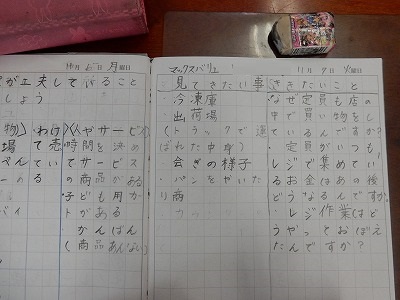 月 6日 月曜日
が工夫していること
しょう
物)
場
べん
ーの
バイ
(わけ)
て売
てい
る
(人やサービス
時間を決め
てサービス
の商品がある
子ども用カー
トがある
かんばん
(商品あんない)
マックスバリュ 11月7日 火曜日
見てきたい事
冷凍庫
出荷場
(トラックで運
ばれた中身)
会ぎの様子
パンをやいた
り商
カ
ききたいこと
なぜ定員も店の
中で買い物をし
ているんですか?
定員がいつも
レジで集めてい
るお金はあの後
どうなるんですか。
レジ作業はど
うやっておぼえ
たんですか?